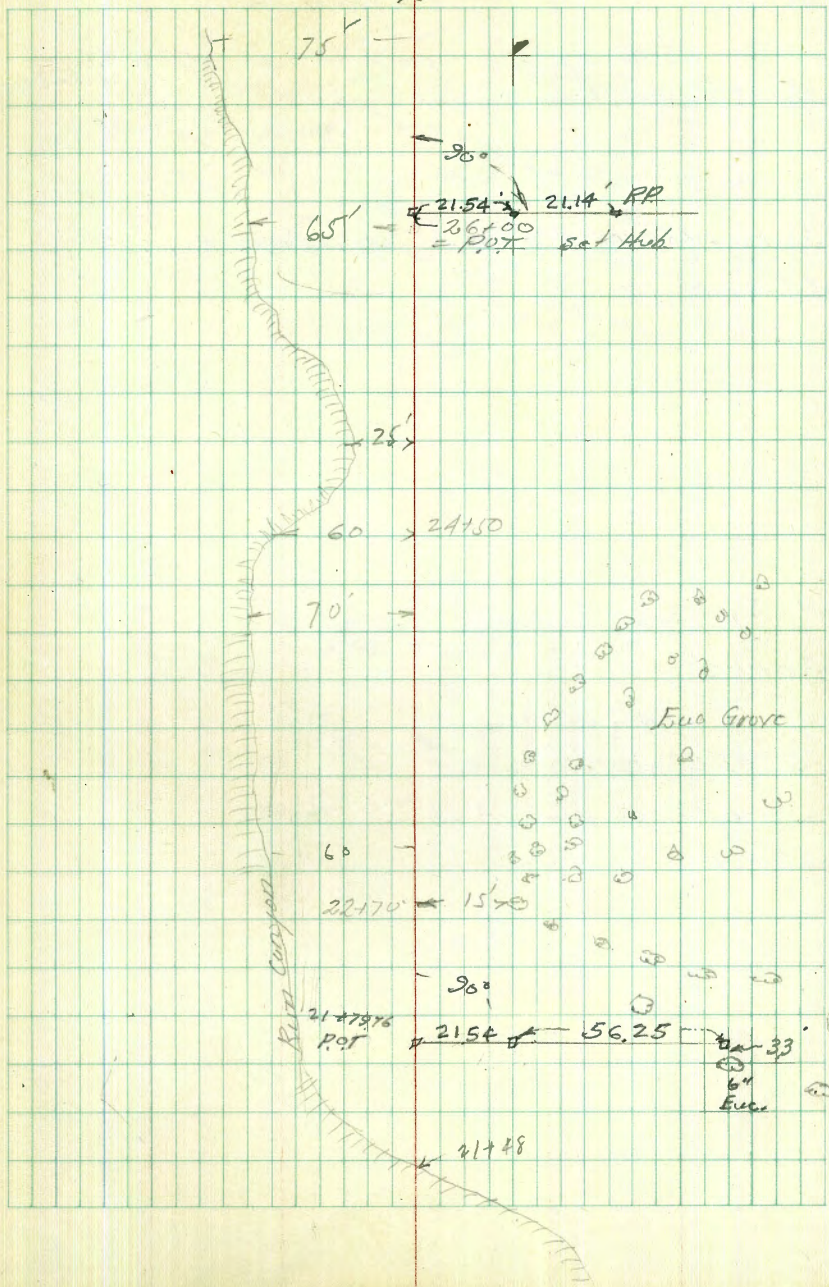 75'
90°
21.54' 21.14' RP.
65'
26+00
= P.O.T. set Hub
25'
60 24+50
70'
Euc Grove
60
22+70 15'
90°
21+79.76
P.O.T
21.54 56.25 33
6"
Euc.
21+48